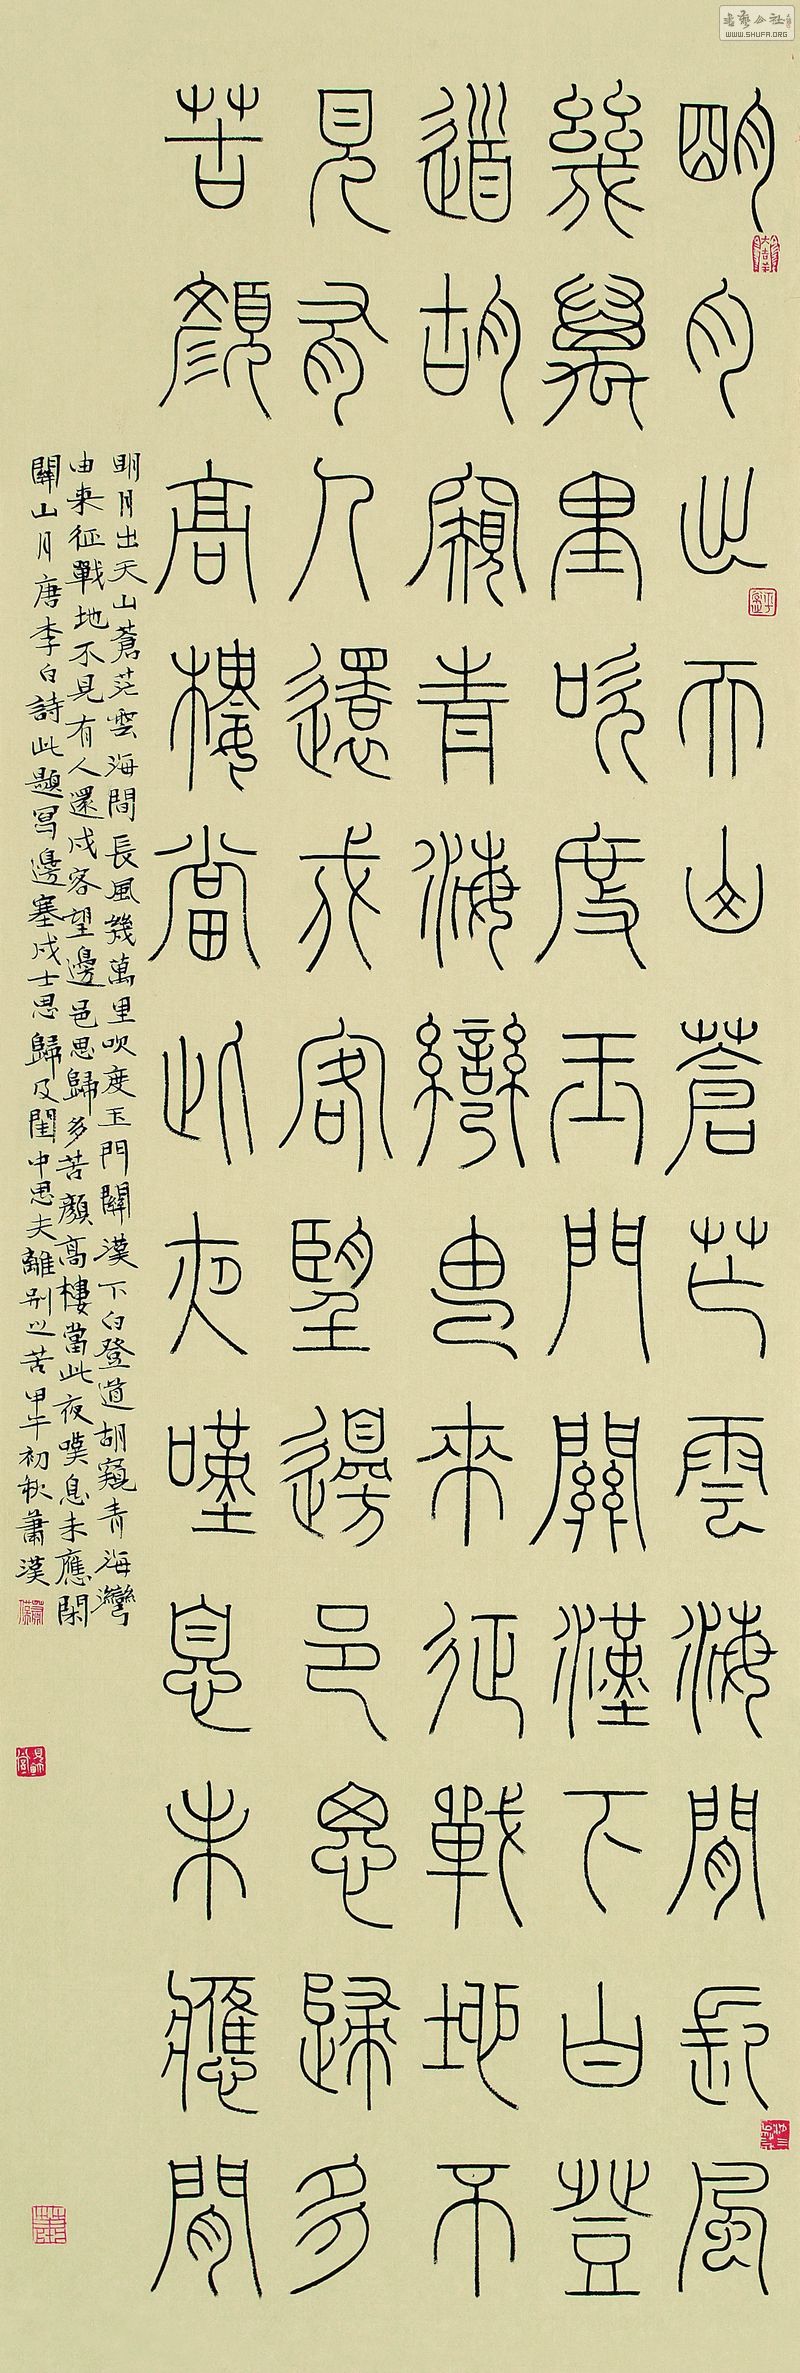 明月出天山蒼茫雲海間長風
幾萬里吹度玉門關漢下白登
道胡窺青海灣由來征戰地不
見有人還戍客望邊邑思歸多
苦顏高樓當此夜嘆息未應閒
明月出天山蒼茫雲海間長風幾萬里吹度玉門關漢下白登道胡窺青海灣
由來征戰地不見有人還戍客望邊邑思歸多苦顏高樓當此夜嘆息未應閑
關山月唐李白詩此題寫邊塞戍士思歸及閨中思夫離别之苦甲午初秋蕭漢
WWW.SHUFA.ORG